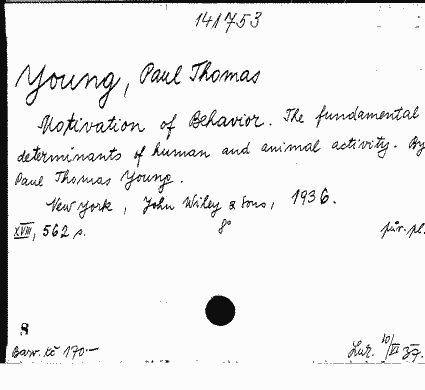 141753
Young, Paul Thomas
Motivation of Behavior. The fundamental
determinants of human and animal activity. By
Paul Thomas Young.
New York, John Wiley & Sons, 1936.
XVIII, 562 s. 8°
8
170.-
10/VI 37.